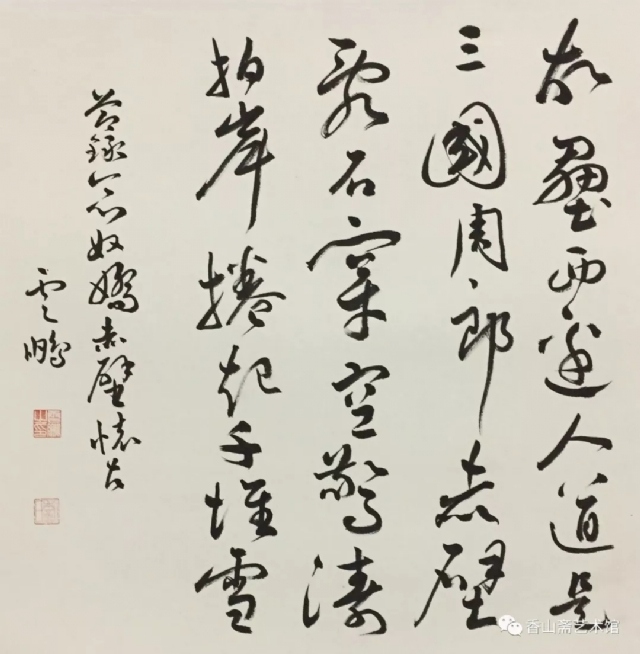 故壘西邊人道是
三國周郎赤壁
亂石穿空驚濤
拍岸捲起千堆雪
節錄念奴嬌赤壁懷古
雲鵬
香山斋艺术馆